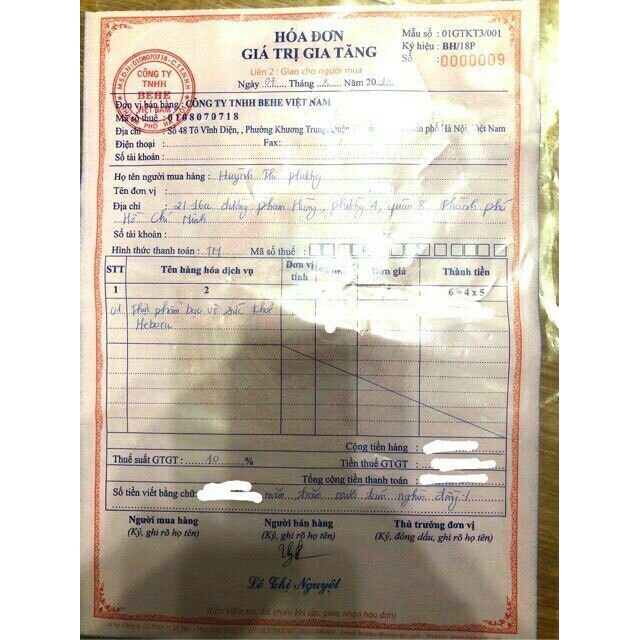 HÓA ĐƠN
GIÁ TRỊ GIA TĂNG
Liên 2: Giao cho người mua
Ngày 07 Tháng 8 Năm 20
Mẫu số : 01GTKT3/001
Ký hiệu : BH/18P
Số : 0000009
M.S.D.N:0108070718-C.T.T.N.H.H
CÔNG TY
TNHH
BEHE
VIỆT NAM
Đơn vị bán hàng : CÔNG TY TNHH BEHE VIỆT NAM
Mã số thuế : 0108070718
Địa chỉ : Số 48 Tô Vĩnh Diện, , Phường Khương Trung, Quận phố Hà Nội, Việt Nam
Điện thoại : Fax:
Số tài khoản:
Họ tên người mua hàng : Huỳnh Thị Phượng
Tên đơn vị :
Địa chỉ : 21 16a đường Phạm Hùng, phường 4, quận 8 Thành phố
Hồ Chí Minh
Số tài khoản:
Hình thức thanh toán : TM Mã số thuế :
STT Tên hàng hóa dịch vụ Đơn vị tính Đơn giá Thành tiền
1 2 6 = 4 x 5
01 Thực phẩm bảo vệ sức khỏe
Heboru
Cộng tiền hàng :
Thuế suất GTGT : 10 % Tiền thuế GTGT :
Tổng cộng tiền thanh toán :
Số tiền viết bằng chữ: năm trăm mươi tám nghìn đồng./
Người mua hàng Người bán hàng Thủ trưởng đơn vị
(Ký, ghi rõ họ tên) (Ký, ghi rõ họ tên) (Ký, đóng dấu, ghi rõ họ tên)
Lê Thị Nguyệt
(Cần kiểm tra, đối chiếu khi lập, giao, nhận hóa đơn)